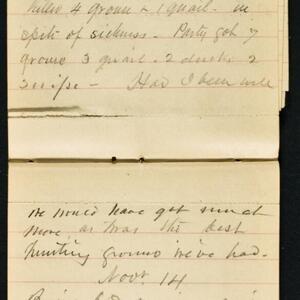 killed 4 grouse & 1 quail - in
spite of sickness - Party got 7
grouse 3 quail - 2 ducks 2
snipe - Had I been well
we would have got much
more, as was the best
hunting ground we've had.
Nov. 14